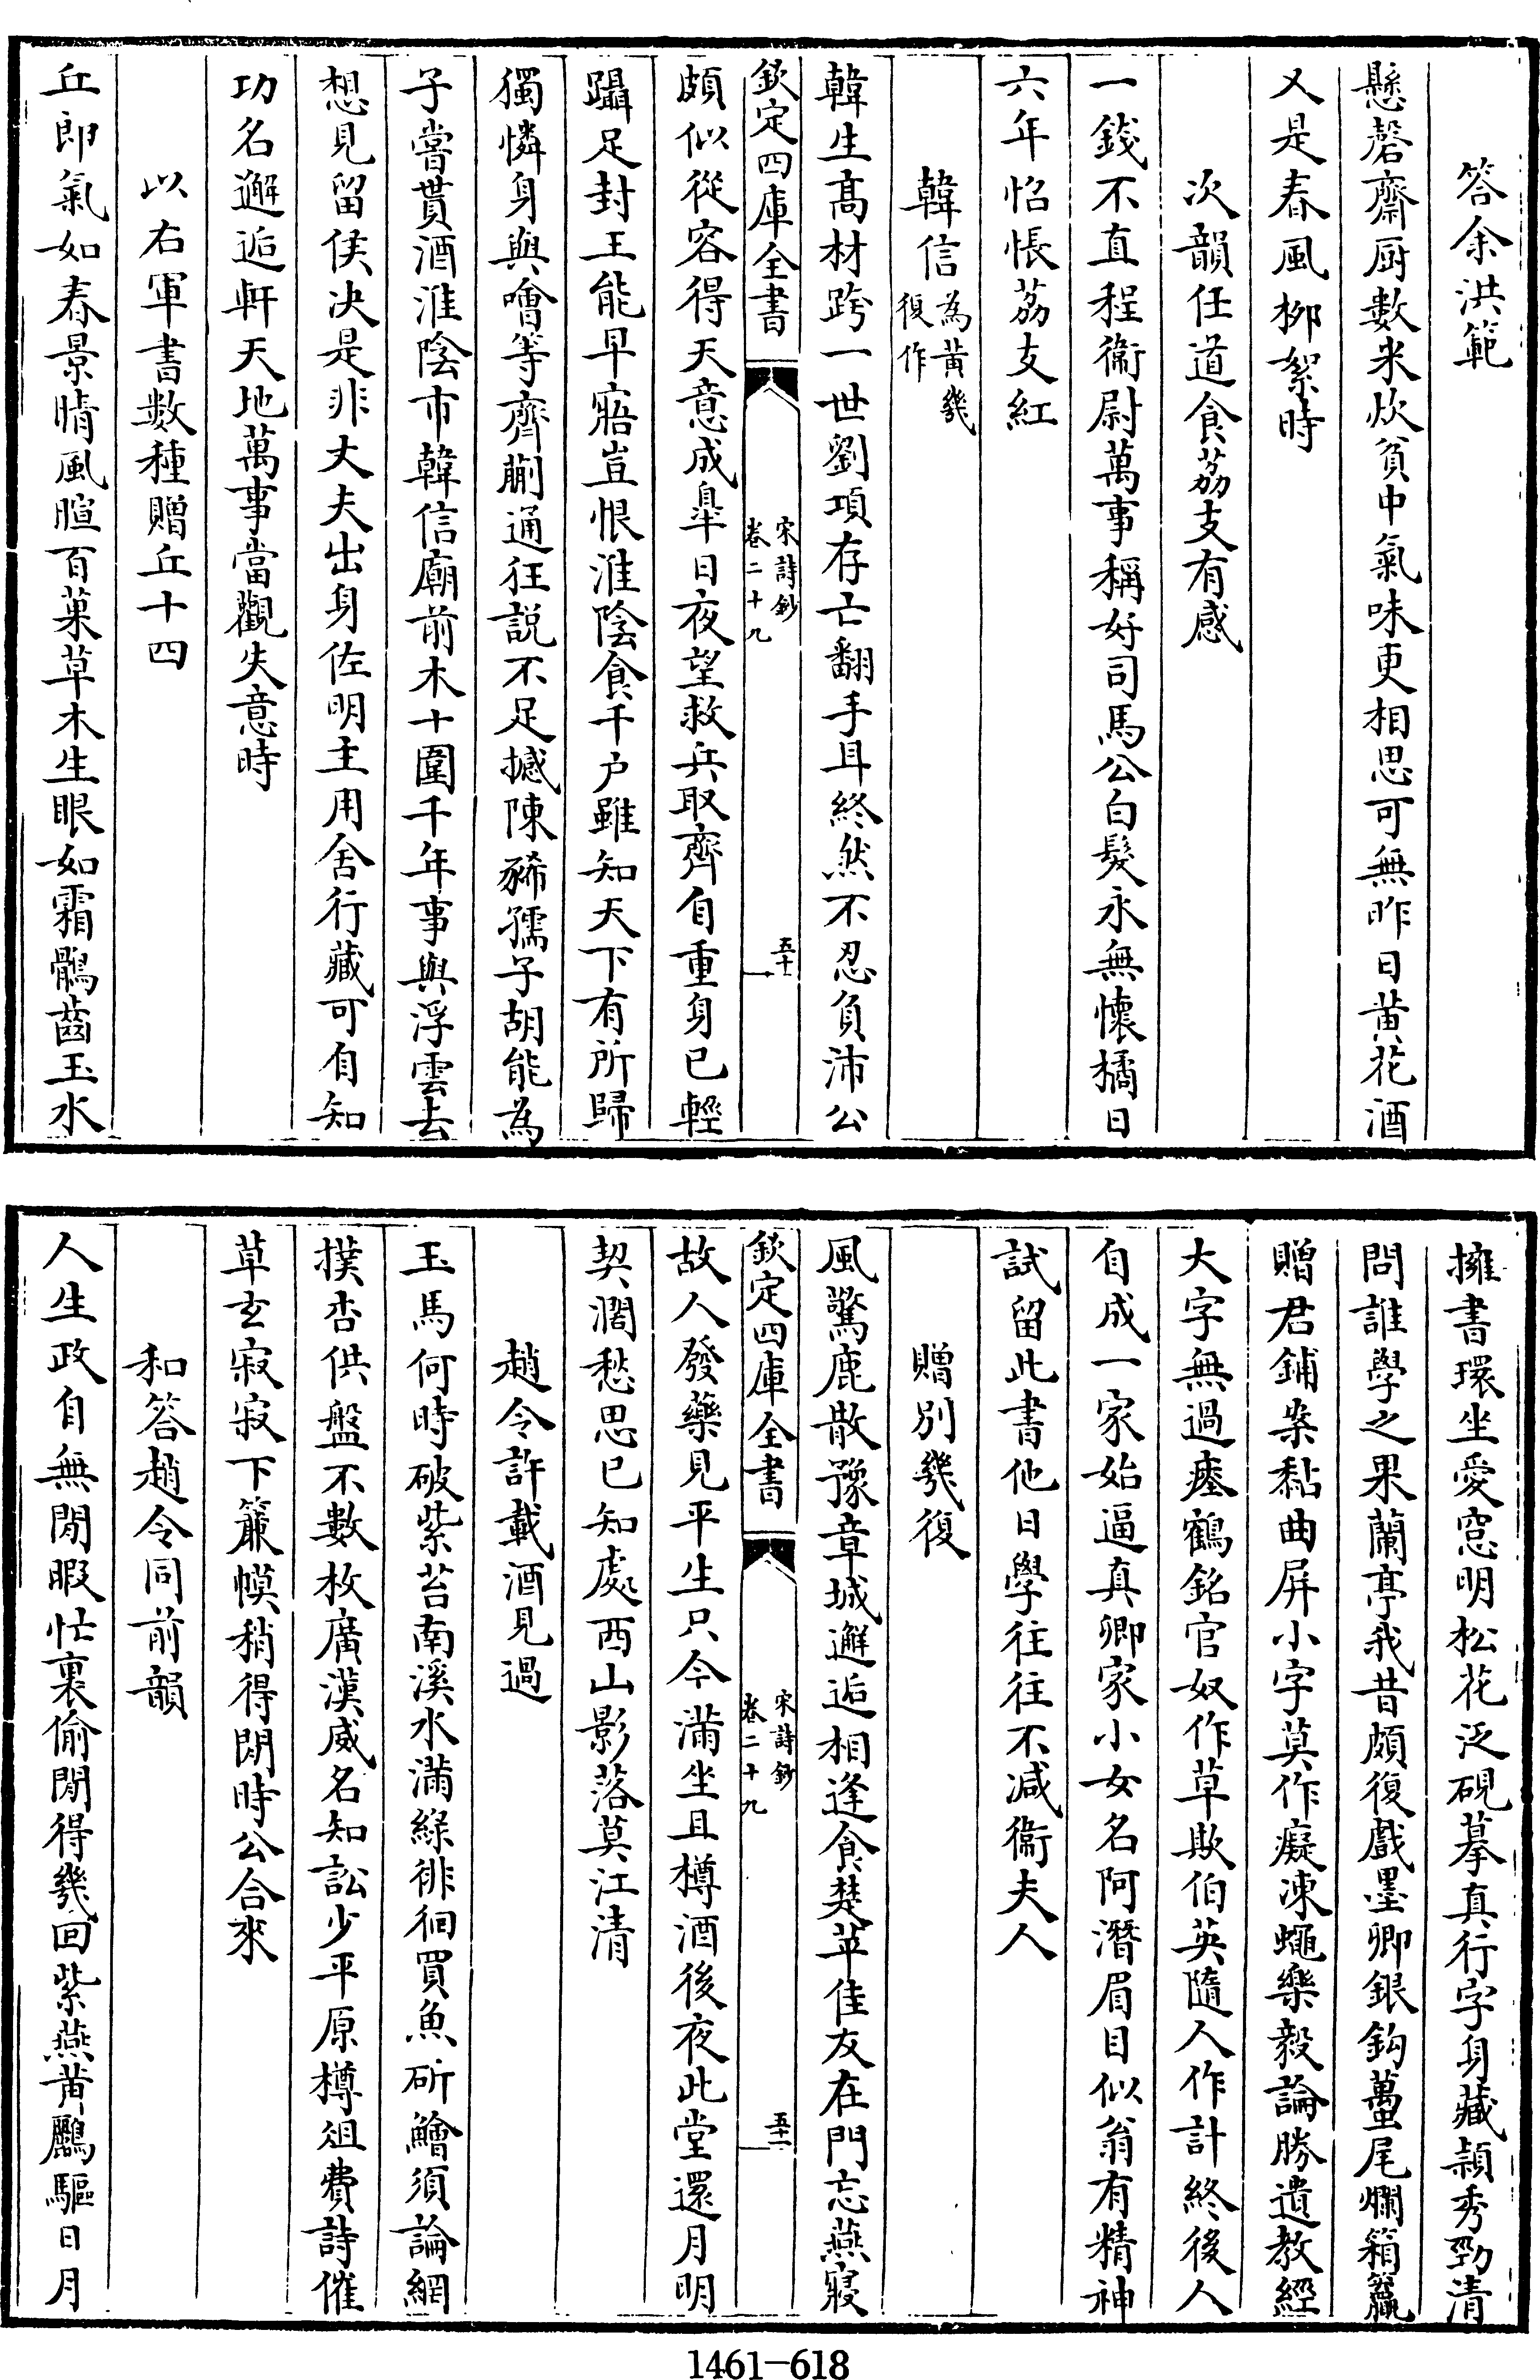 答余洪範
懸磬齋厨數米炊貧中氣味更相思可無昨日黄花酒
又是春風柳絮時
次韻任道食荔支有感
一錢不直程衞尉萬事稱好司馬公白髮永無懷橘日
六年怊悵荔支紅
韓信為黄幾復作
韓生髙材跨一世劉項存亡翻手耳終然不忍負沛公
欽定四庫全書
宋詩鈔
卷二十九
五十一
頗似從容得天意成臯日夜望救兵取齊自重身已輕
躡足封王能早寤豈恨淮陰食千户雖知天下有所歸
獨憐身與噲等齊蒯通狂説不足撼陳豨孺子胡能為
子嘗貰酒淮陰市韓信廟前木十圍千年事與浮雲去
想見留侯决是非丈夫出身佐明主用舍行藏可自知
功名邂逅軒天地萬事當觀失意時
以右軍書數種贈丘十四
丘郎氣如春景晴風暄百菓草木生眼如霜鶻齒玉水
擁書環坐愛窓明松花泛硯摹真行字身藏頴秀勁清
問誰學之果蘭亭我昔頗復戲墨卿銀鈎蠆尾爛箱籯
贈君鋪案黏曲屏小字莫作癡凍蠅樂毅論勝遺教經
大字無過瘞鶴銘官奴作草欺伯英隨人作計終後人
自成一家始逼真卿家小女名阿潛眉目似翁有精神
試留此書他日學往往不减衞夫人
贈别幾復
風驚鹿散豫章城邂逅相逢食楚苹佳友在門忘燕寢
欽定四庫全書
宋詩鈔
卷二十九
故人發藥見平生只今滿坐且樽酒後夜此堂還月明
契濶愁思已知處西山影落莫江清
趙令許載酒見過
玉馬何時破紫苔南溪水滿綠徘徊買魚斫鱠須論網
撲杏供盤不數枚廣漢威名知訟少平原樽俎費詩催
草玄寂寂下簾幙稍得閒時公合來
和答趙令同前韻
人生政自無閒暇忙裏偷閒得幾回紫燕黄鸝驅日月
1461-618